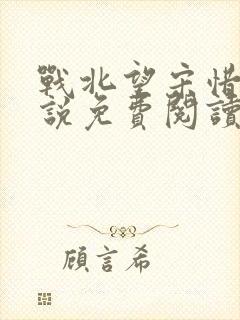 戰北望宋惜
說免費閱讀
顧言希